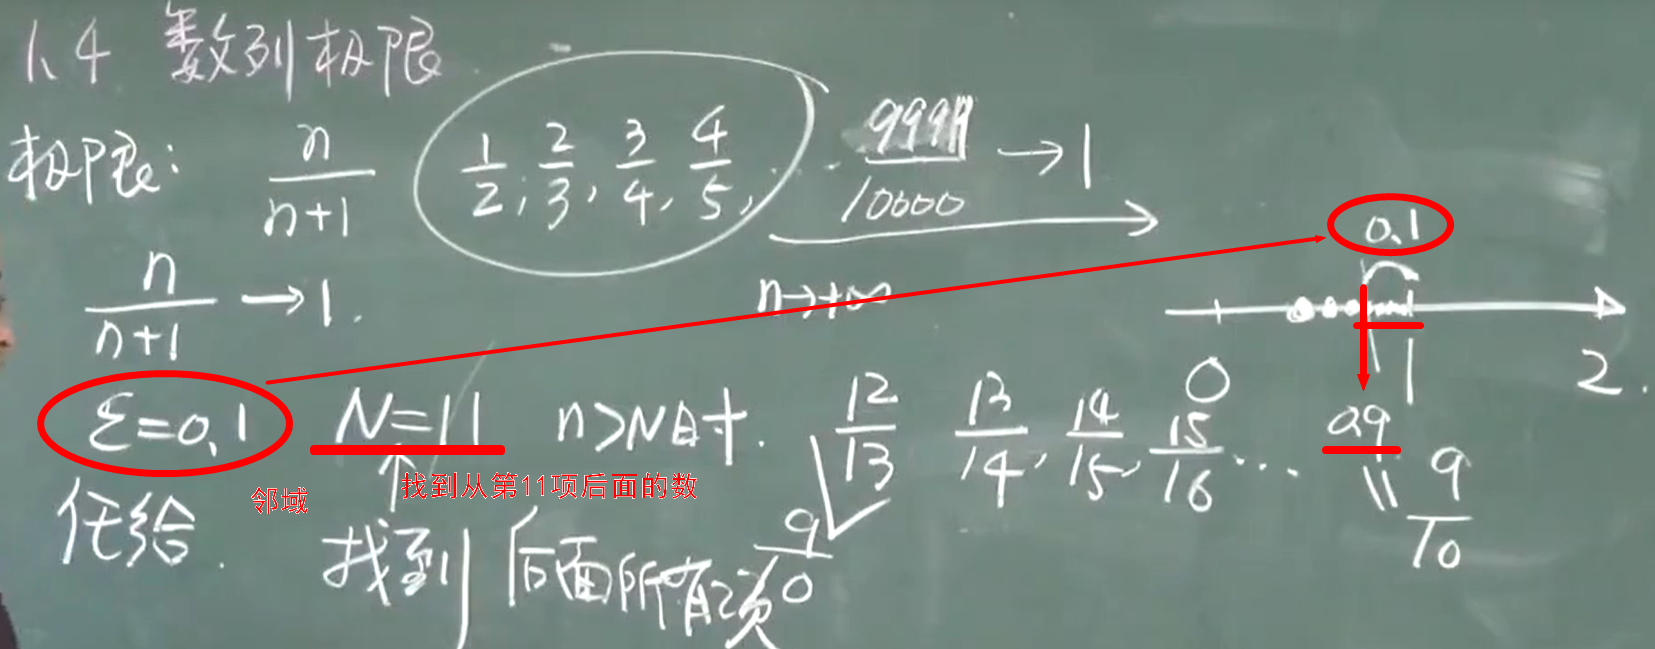 1.4 数列极限
极限: n/(n+1) 1/2, 2/3, 3/4, 4/5, ... 9999/10000 →1
n→+∞
n/(n+1) →1.
0.1
0 1 2
ε=0.1 N=11 n>N时. 12/13 13/14, 14/15, 15/16 ...
0.9 = 9/10
邻域 找到从第11项后面的数
任给. 找到 后面所有项 9/10